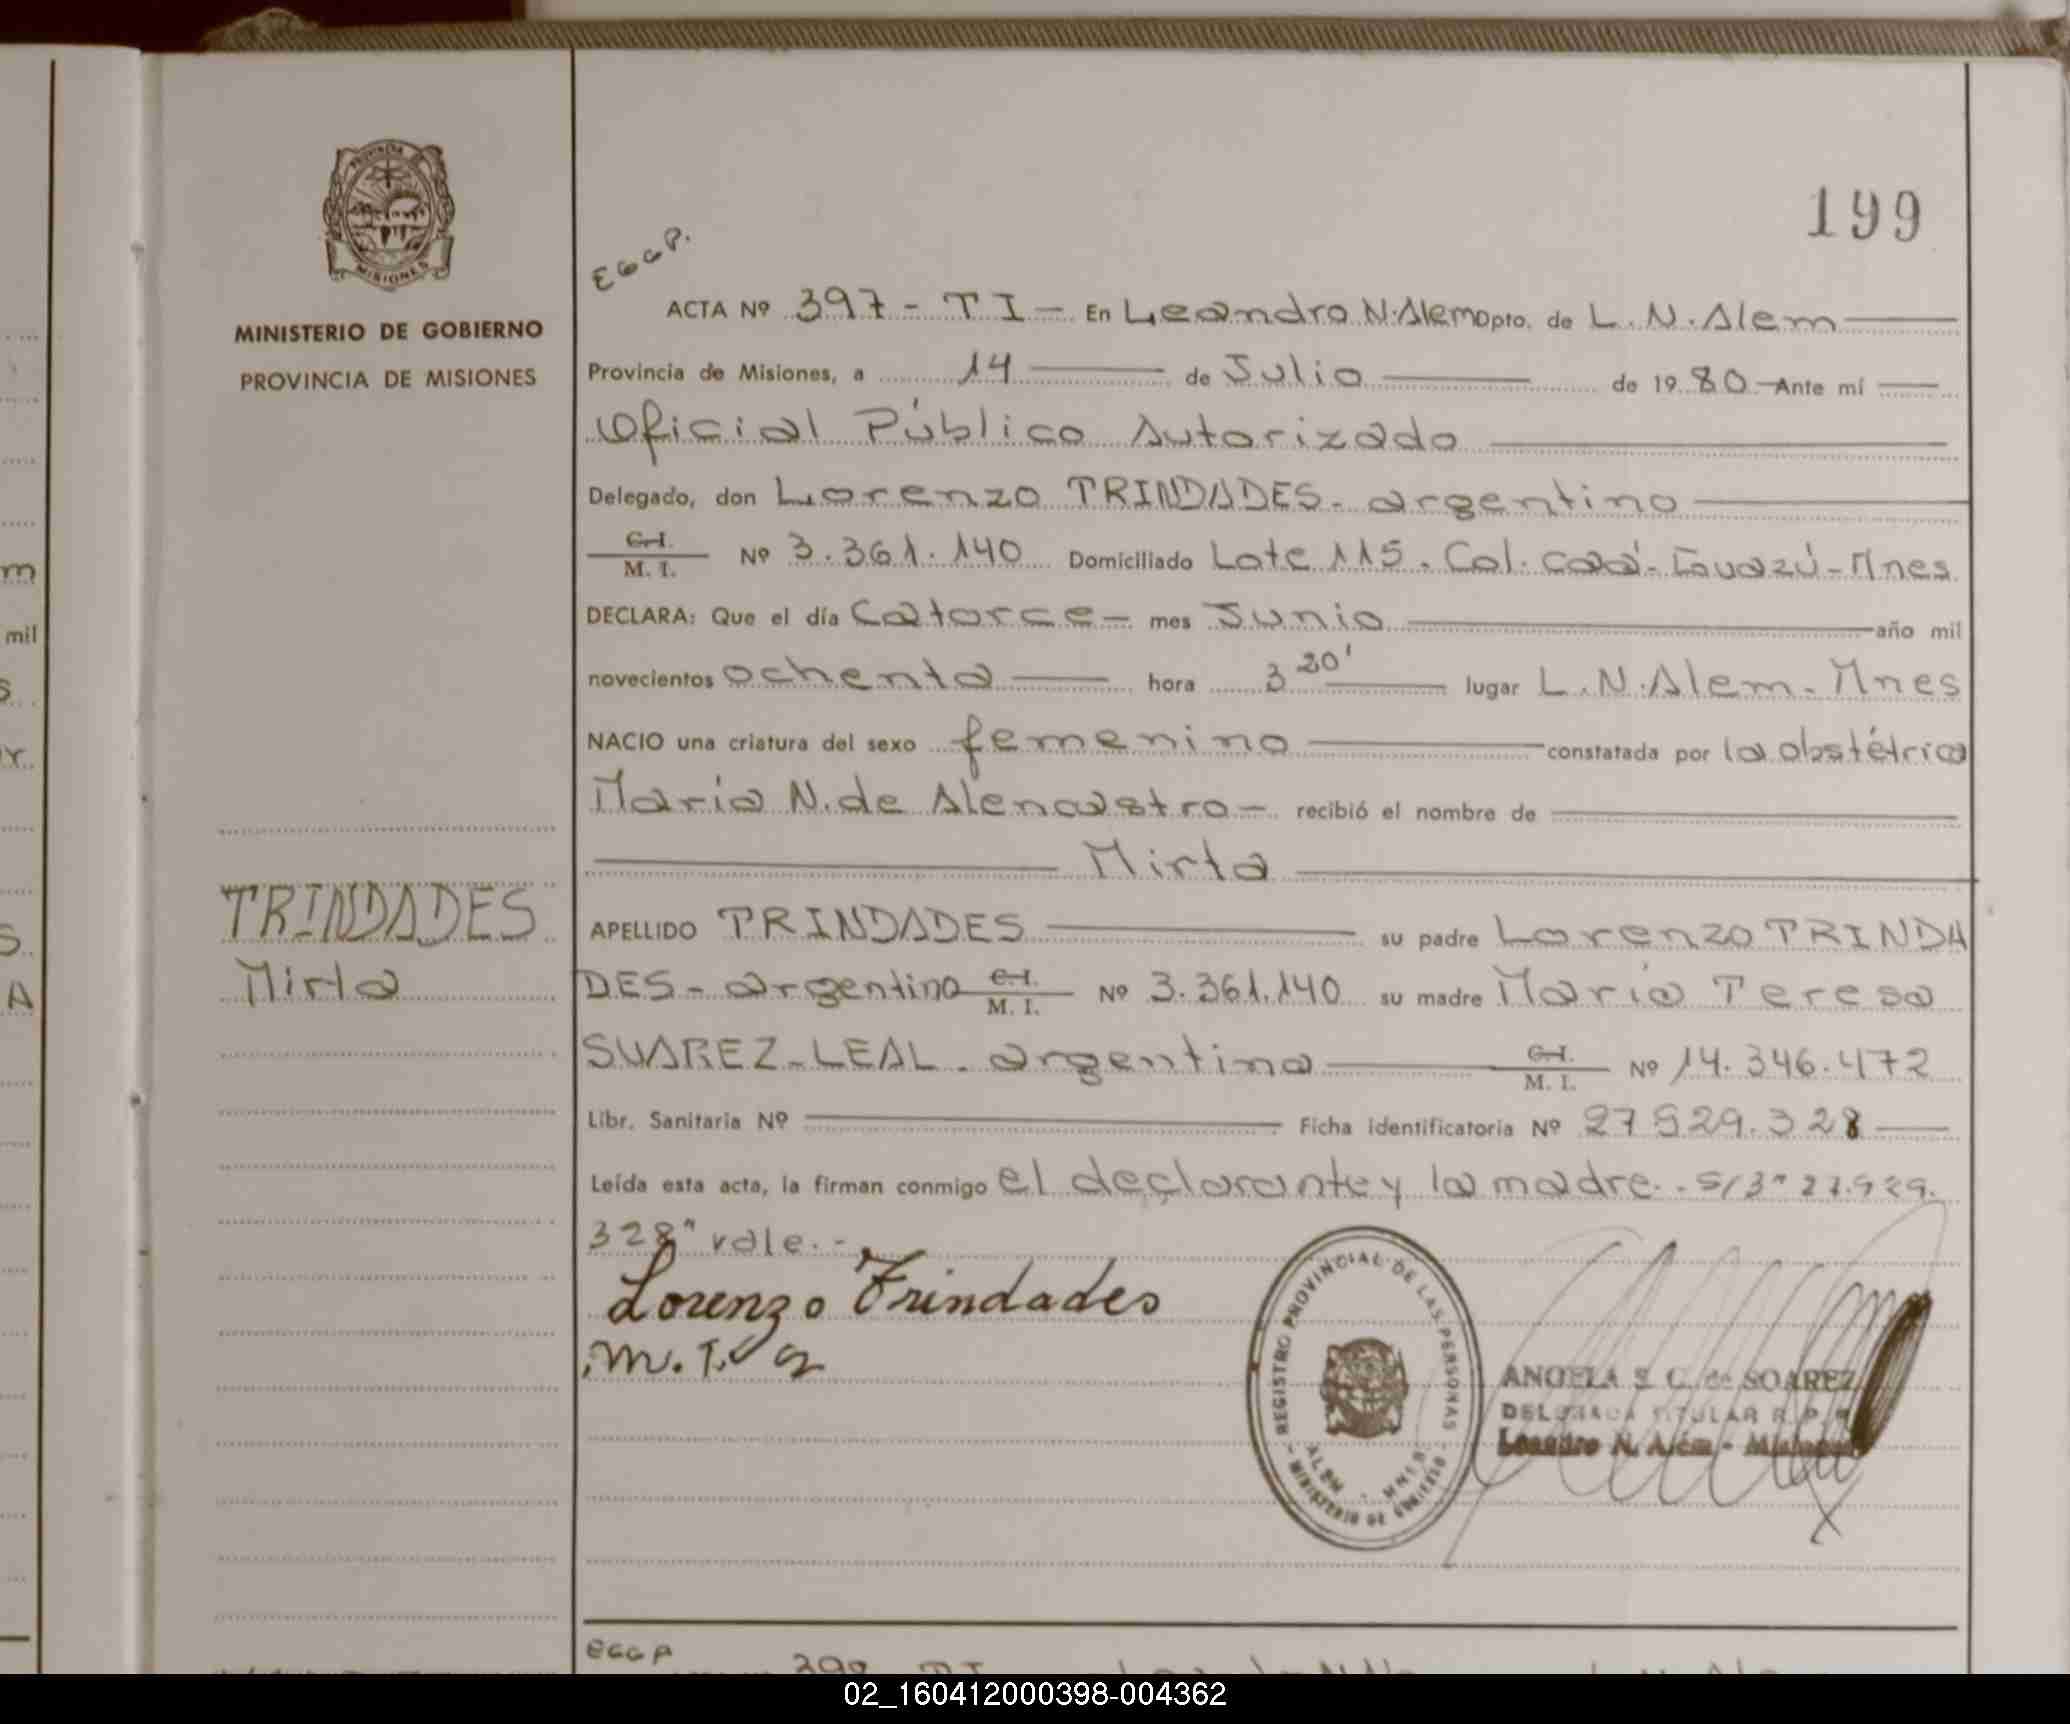 199
E G G P.
PROVINCIA DE
MISIONES
MINISTERIO DE GOBIERNO
PROVINCIA DE MISIONES
ACTA Nº 397 - T I - En Leandro N. Alem Dpto. de L. N. Alem
Provincia de Misiones, a 14 de Julio de 19 80 Ante mí
Oficial Público Autorizado
Delegado, don Lorenzo TRINDADES - argentino
C. I.
M. I. Nº 3.361.140 Domiciliado Lote 115. Col. Caá-Guazú-Mnes
DECLARA: Que el día Catorce - mes Junio año mil
novecientos ochenta hora 3 20' lugar L. N. Alem - Mnes
NACIO una criatura del sexo femenino constatada por la obstétrica
María N. de Alencastro - recibió el nombre de
Mirta
TRINDADES
Mirta
APELLIDO TRINDADES su padre Lorenzo TRINDA
DES - argentino C. I. M. I. Nº 3.361.140 su madre María Teresa
SUAREZ-LEAL. argentina C. I. M. I. Nº 14.346.472
Libr. Sanitaria Nº Ficha identificatoria Nº 27 929.328
Leída esta acta, la firman conmigo el declarante y la madre.. S/3" 27.929.
328" vale.-
Lorenzo Trindades
M. T.
REGISTRO PROVINCIAL DE LAS PERSONAS
ALEM - MNES
MINISTERIO DE GOBIERNO
ANGELA S. C. de SOAREZ
DELEGADA TITULAR R. P. P.
Leandro N. Alem - Misiones
EGGP
398 TI
m
mil
S.
r.
S.
A
02_160412000398-004362